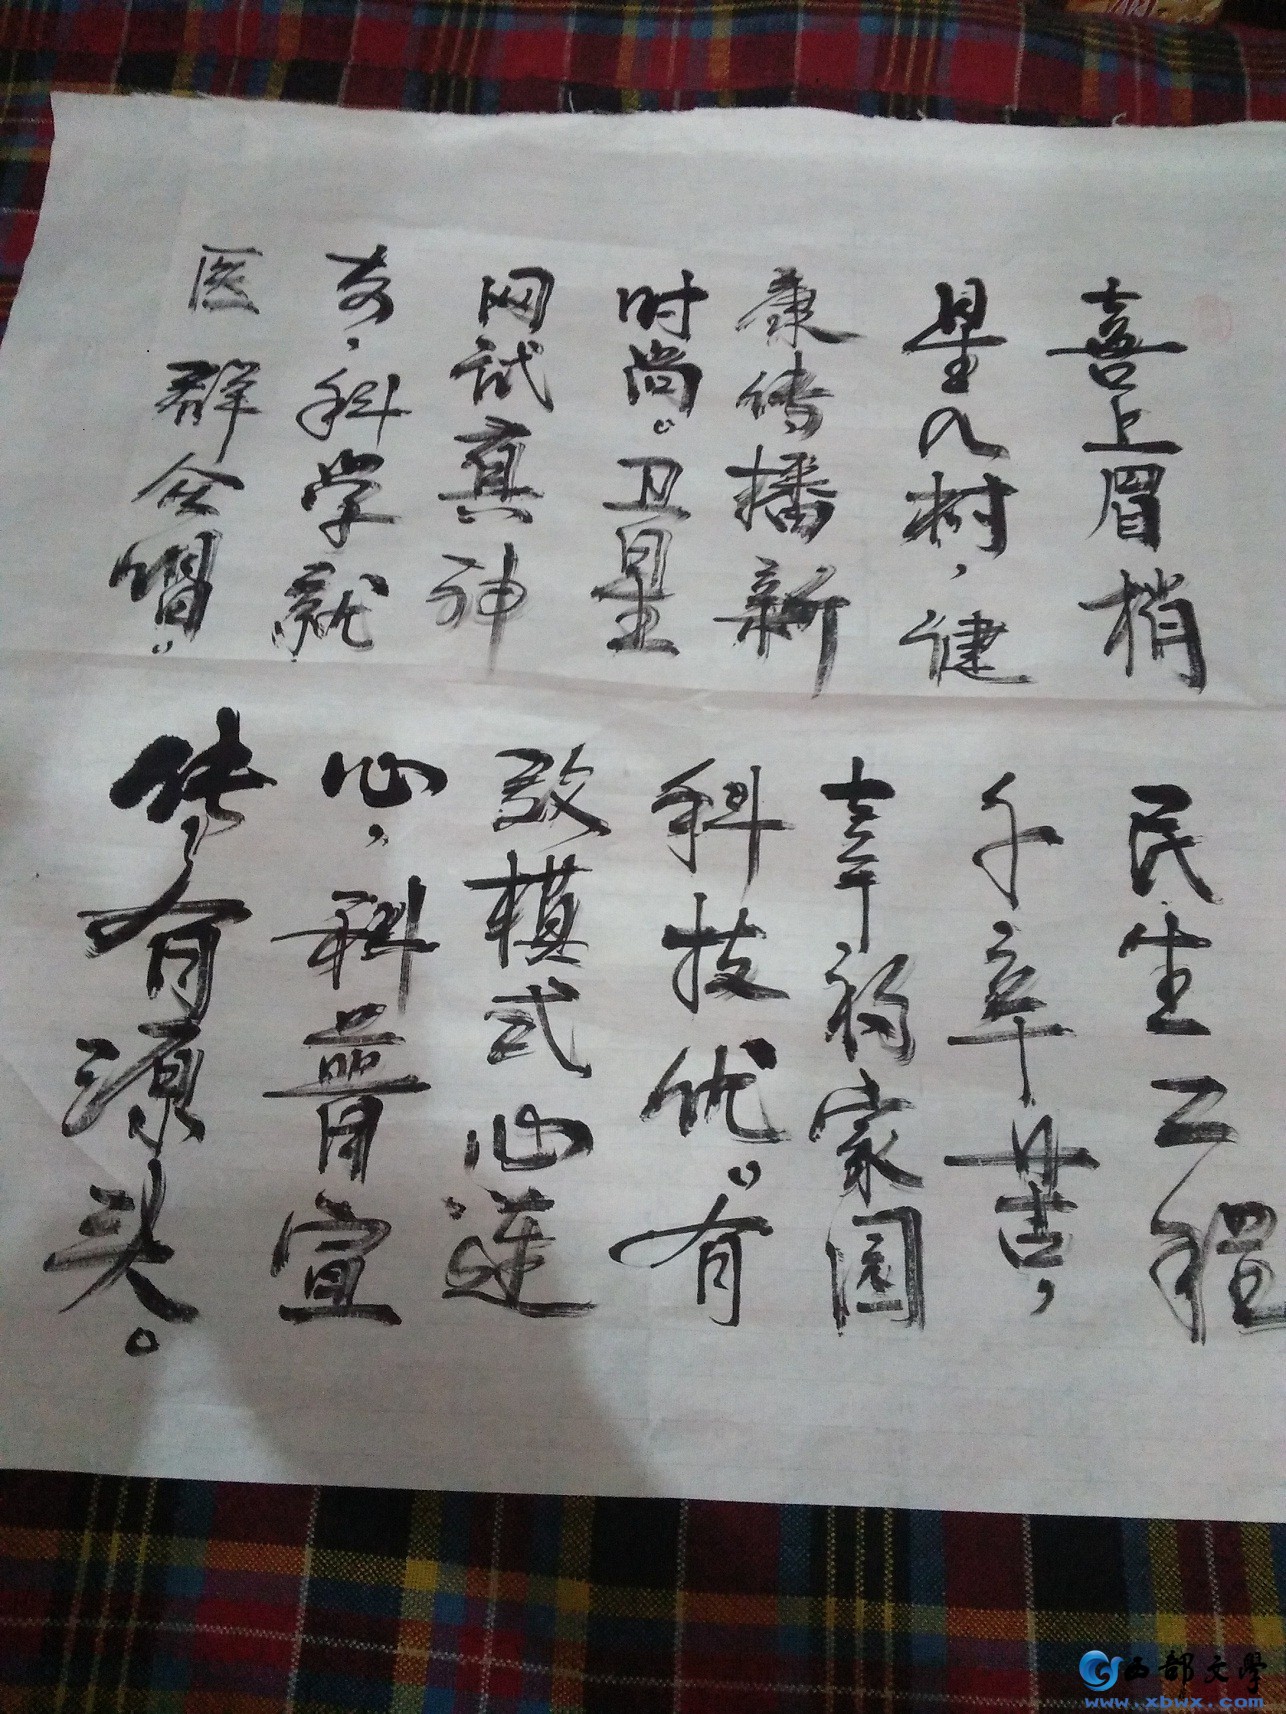 喜上眉梢
星树，健
康传播新
时尚。卫星
网试真神
奇，科学就
医群唱。
民生工程
千辛苦，
幸福家园
科技优。有
效模式心连
心，科普宣
传有源头。
西部文学
www.xbwx.com